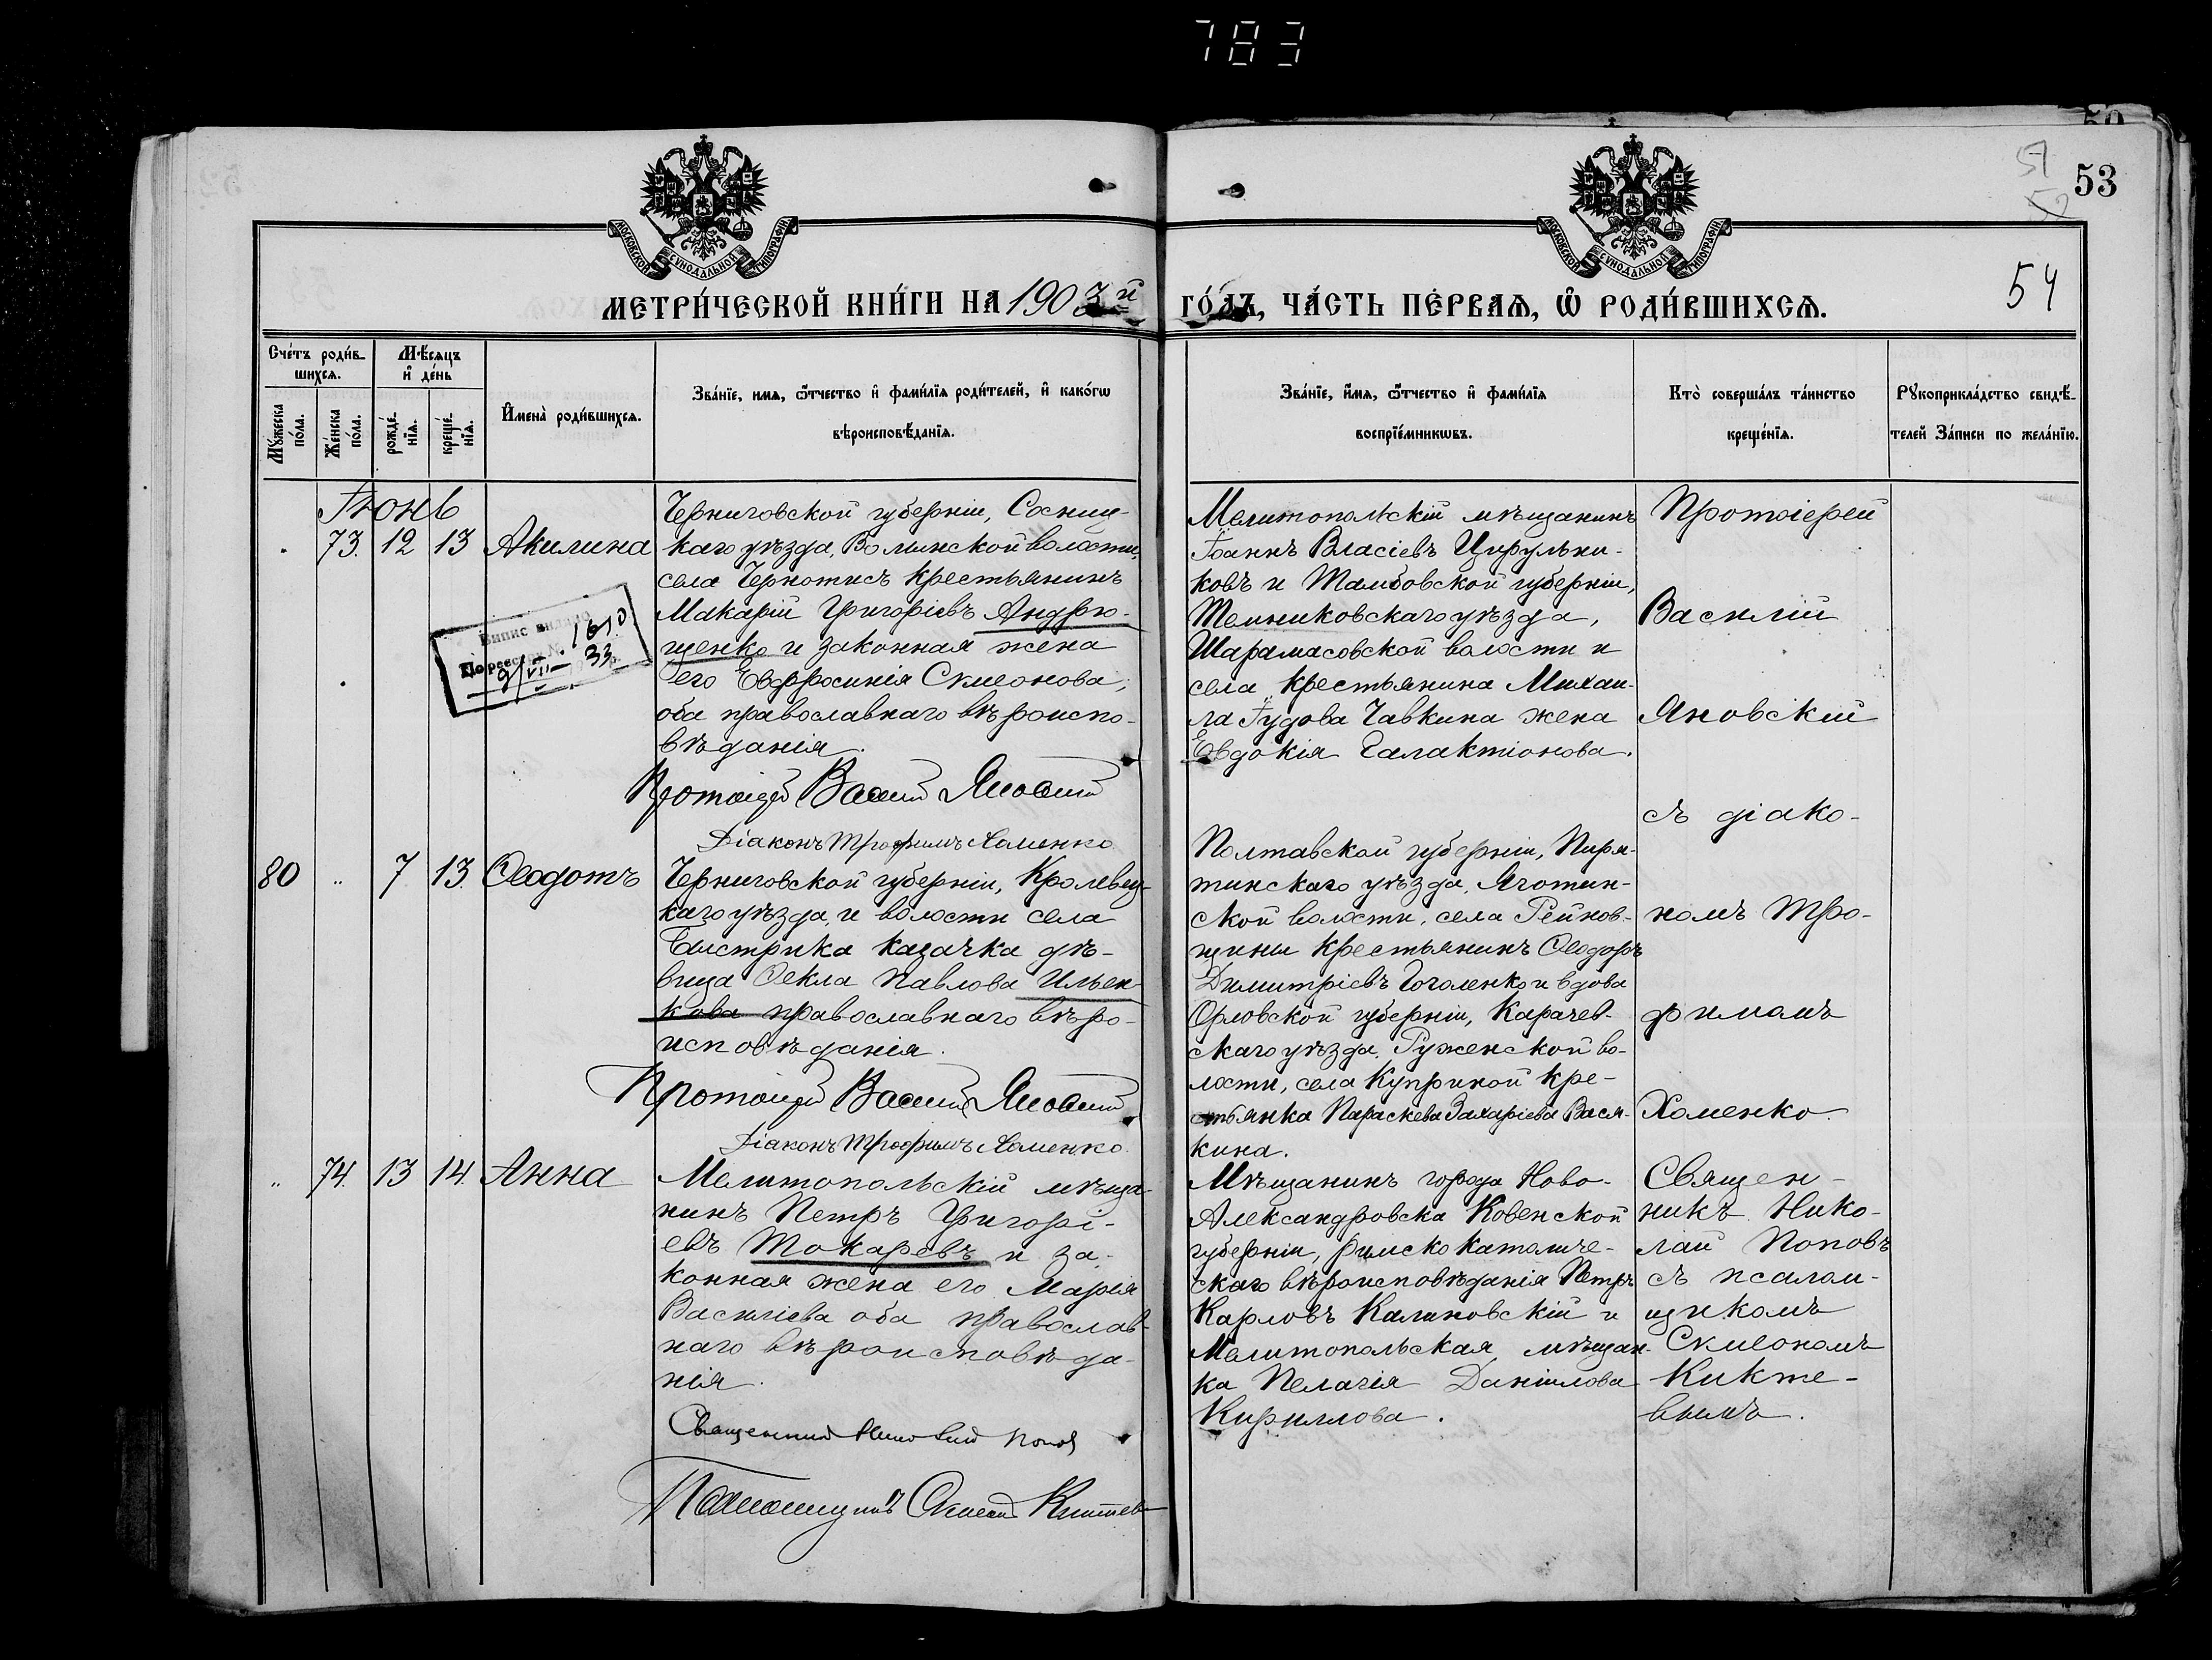 783
53
54
МОСКОВСКОЙ СУНОДАЛЬНОЙ ТИПОГРАФІИ
МОСКОВСКОЙ СУНОДАЛЬНОЙ ТИПОГРАФІИ
МЕТРИ́ЧЕСКОЙ КНИ́ГИ НА 1903й ГО́ДЪ, ЧА́СТЬ ПЕ́РВАѦ, Ѡ҆ РОДИ́ВШИХСѦ.
Сче́тъ роди́в-
шихсѧ.
Мꙋ́жеска по́ла.
Же́нска по́ла.
Мѣ́сяцъ
и҆ де́нь
рожде́нїѧ.
креще́нїѧ.
И҆мена̀ роди́вшихсѧ.
Зва́нїе, имѧ, ѻ҆́тчество и҆ фами́лїѧ роди́телей, и҆ како́гѡ
вѣроисповѣ́данїѧ.
Зва́нїе, и҆́мѧ, ѻ҆́тчество и҆ фами́лїѧ
воспрїе́мникѡвъ.
Кто̀ соверша́лъ та́инство
креще́нїѧ.
Рꙋкоприкла́дство свидѣ́-
телей За́писи по жела́нїю.
Іюнь
73. 12 13 Акилина
Черниговской губерніи, Сосниц-
каго уѣзда, Волынской волости,
села Чернотичъ крестьянинъ
Макарій Григоріевъ Андрю-
щенко и законная жена
его Евфросинія Сѵмеонова,
оба православнаго вѣроиспо-
вѣданія.
Випис видано
По реестру № 1610
9/VII 33
Протоіерей Василій Яновскій
Діаконъ Трофимъ Хоменко
Мелитопольскій мѣщанинъ
Іоаннъ Власіевъ Цирульни-
ковъ и Тамбовской губерніи,
Темниковскаго уѣзда,
Шарамасовской волости и
села крестьянина Михаи-
ла Іудова Чавкина жена
Евдокія Галактіонова.
Протоіерей
Василій
Яновскій
съ діако-
номъ Тро-
фимомъ
Хоменко.
80 " 7 13. Ѳеодотъ
Черниговской губерніи, Кролевец-
каго уѣзда и волости села
Быстрика казачка дѣ-
вица Ѳекла Павлова Ильен-
кова православнаго вѣро-
исповѣданія.
Протоіерей Василій Яновскій
Діаконъ Трофимъ Хоменко
Полтавской губерніи, Пиря-
тинскаго уѣзда, Яготин-
ской волости, села Рейнов-
щины крестьянинъ Ѳеодоръ
Димитріевъ Гоголенко и вдова
Орловской губерніи, Карачев-
скаго уѣзда, Руженской во-
лости, села Куприной кре-
стьянка Параскева Захаріева Вася-
кина.
" 74. 13 14. Анна
Мелитопольскій мѣща-
нинъ Петръ Григорі-
евъ Токаревъ и за-
конная жена его Марія
Василіева оба православ-
наго вѣроисповѣда-
нія.
Священникъ Николай Поповъ
Псаломщикъ Сѵмеонъ Киктевъ
Мѣщанинъ города Ново-
Александровска Ковенской
губерніи, римско католиче-
скаго вѣроисповѣданія Петръ
Карловъ Калиновскій и
Мелитопольская мѣщан-
ка Пелагія Даніилова
Кириллова.
Священ-
никъ Нико-
лай Поповъ
съ псалом-
щикомъ
Сѵмеономъ
Кикте-
вымъ.